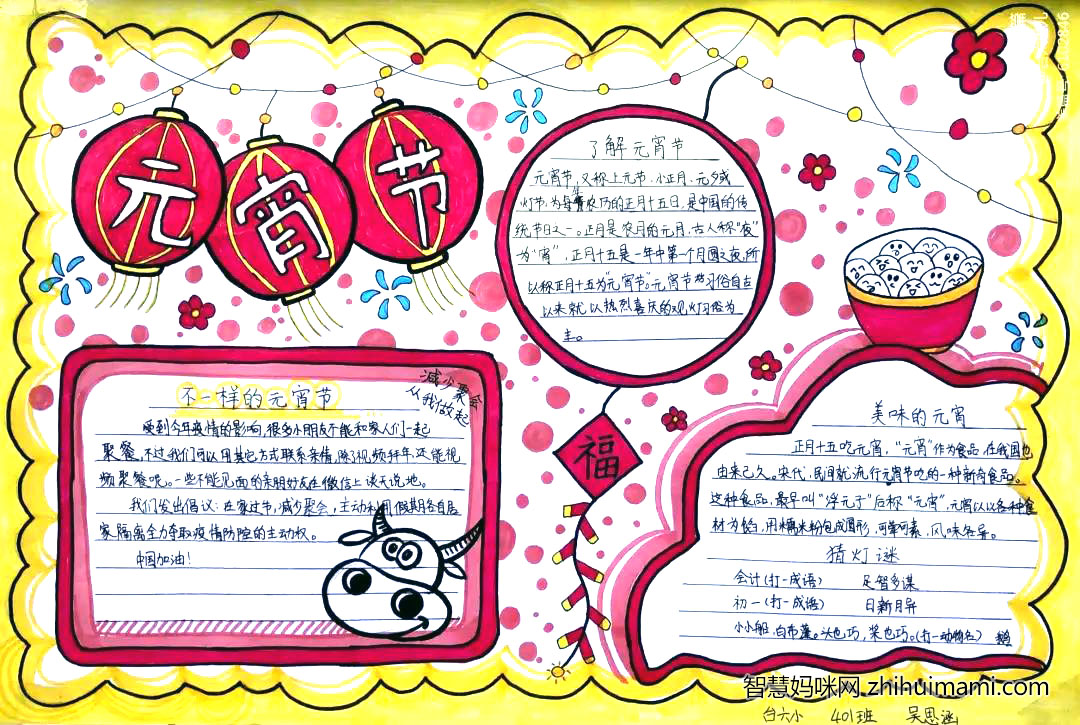 元宵节
了解元宵节
元宵节，又称上元节、小正月、元夕或
灯节，为每年农历的正月十五日，是中国的传
统节日之一。正月是农月的元月，古人称“夜”
为“宵”，正月十五是一年中第一个月圆之夜，所
以称正月十五为“元宵节”。元宵节的习俗自古
以来就以热烈喜庆的观灯习俗为
主。
不一样的元宵节
减少聚会
从我做起
受到今年疫情的影响，很多小朋友不能和家人们一起
聚餐，不过我们可以用其它方式联系亲情，除了视频拜年，还能视
频聚餐呢。一些不能见面的亲朋好友在微信上谈天说地。
我们发出倡议：在家过节，减少聚会，主动利用假期各自居
家隔离全力夺取疫情防控的主动权。
中国加油！
福
美味的元宵
正月十五吃元宵，“元宵”作为食品，在我国也
由来已久。宋代，民间就流行元宵节吃的一种新奇食品。
这种食品，最早叫“浮元子”后称“元宵”，元宵以以各种食
材为馅，用糯米粉包成圆形，可荤可素，风味各异。
猜灯谜
会计（打一成语） 足智多谋
初一（打一成语） 日新月异
小小船，白布篷。头也巧，桨也巧。（打一动物名） 鹅
智慧妈咪网 zhihuimami.com
台六小 401班 吴思涵